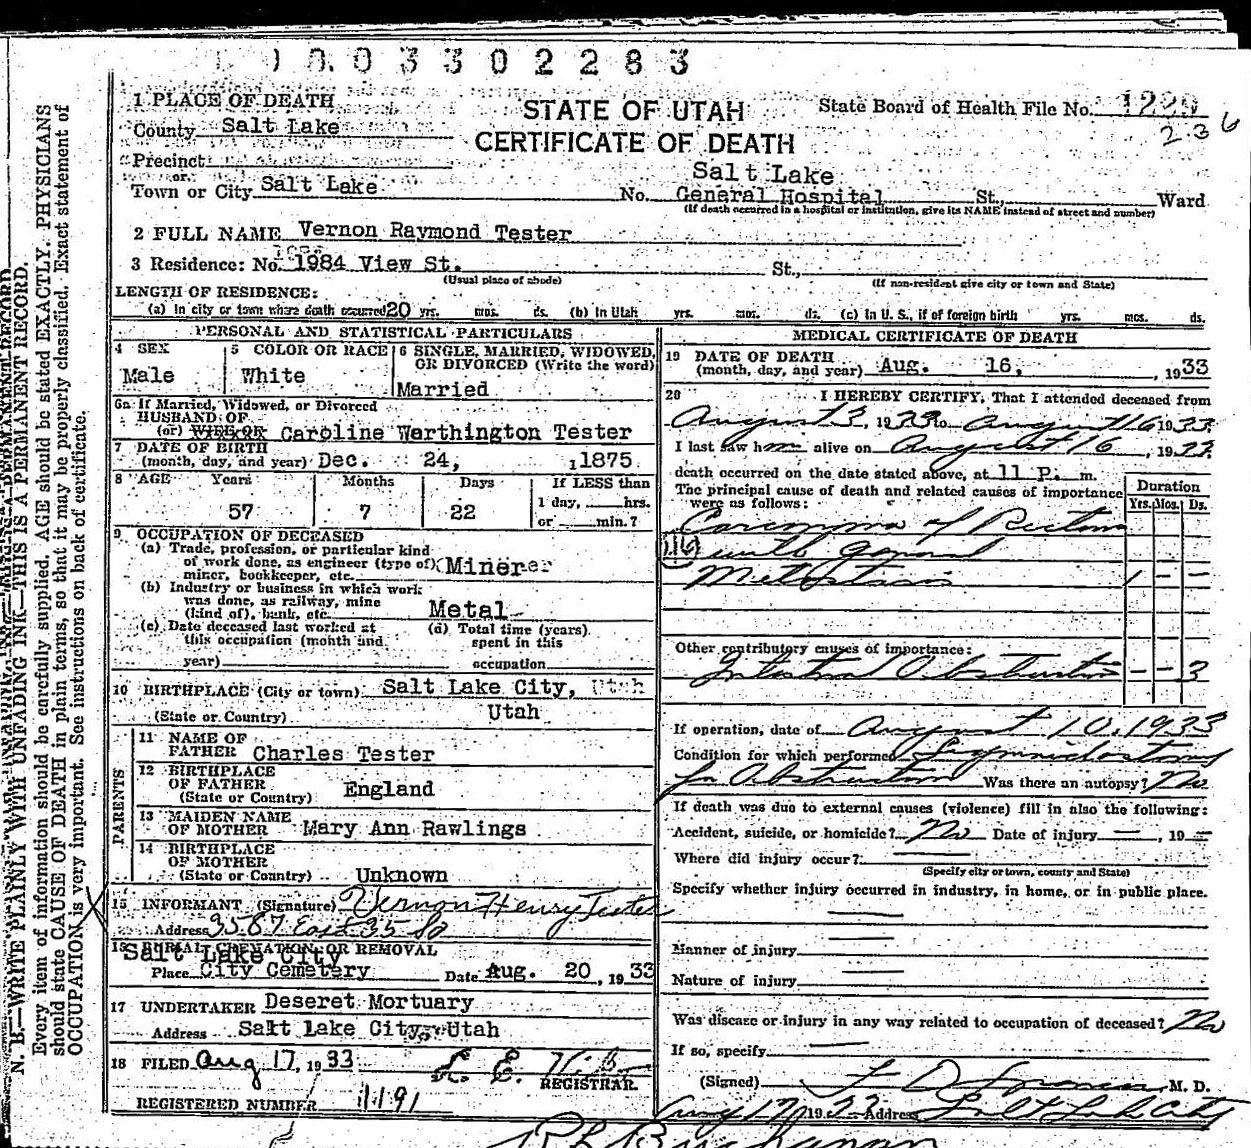 1 0 0 3 3 0 2 2 8 3
STATE OF UTAH
CERTIFICATE OF DEATH
State Board of Health File No. 1229
236
1 PLACE OF DEATH
County Salt Lake
Precinct
or
Town or City Salt Lake No. Salt Lake General Hospital St., Ward
(If death occurred in a hospital or institution, give its NAME instead of street and number)
2 FULL NAME Vernon Raymond Tester
3 Residence: No. 1984 View St. St.,
(Usual place of abode) (If non-resident give city or town and State)
LENGTH OF RESIDENCE:
(a) In city or town where death occurred 20 yrs. mos. ds. (b) In Utah yrs. mos. ds. (c) In U. S., if of foreign birth yrs. mos. ds.
PERSONAL AND STATISTICAL PARTICULARS
4 SEX
Male
5 COLOR OR RACE
White
6 SINGLE, MARRIED, WIDOWED, OR DIVORCED (Write the word)
Married
6a If Married, Widowed, or Divorced
HUSBAND OF
(or) WIFE OF Caroline Worthington Tester
7 DATE OF BIRTH
(month, day, and year) Dec. 24, 1875
8 AGE Years Months Days If LESS than
57 7 22 1 day, hrs.
or min.?
9 OCCUPATION OF DECEASED
(a) Trade, profession, or particular kind
of work done, as engineer (type of) Miner
miner, bookkeeper, etc.
(b) Industry or business in which work
was done, as railway, mine
(kind of), bank, etc. Metal
(c) Date deceased last worked at
this occupation (month and
year)
(d) Total time (years)
spent in this
occupation
10 BIRTHPLACE (City or town) Salt Lake City, Utah
(State or Country) Utah
PARENTS
11 NAME OF
FATHER Charles Tester
12 BIRTHPLACE
OF FATHER England
(State or Country)
13 MAIDEN NAME
OF MOTHER Mary Ann Rawlings
14 BIRTHPLACE
OF MOTHER
(State or Country) Unknown
15 INFORMANT (Signature) Vernon Henry Tester
Address 3587 East 35 So
16 BURIAL, CREMATION, OR REMOVAL
Salt Lake City
Place City Cemetery Date Aug. 20, 1933
17 UNDERTAKER Deseret Mortuary
Address Salt Lake City, Utah
18 FILED Aug 17, 1933
L. E.
REGISTRAR.
REGISTERED NUMBER 1191
MEDICAL CERTIFICATE OF DEATH
19 DATE OF DEATH
(month, day, and year) Aug. 16, 1933
20 I HEREBY CERTIFY, That I attended deceased from
August 3, 1933 to August 16 1933
I last saw him alive on August 16, 1933
death occurred on the date stated above, at 11 P. m.
The principal cause of death and related causes of importance
were as follows:
Duration
Yrs. Mos. Ds.
Carcinoma of Rectum
with General
Metastasis 1 - -
Other contributory causes of importance:
Intestinal Obstruction - - 3
If operation, date of August 10, 1933
Condition for which performed
for Obstruction Was there an autopsy? No
If death was due to external causes (violence) fill in also the following:
Accident, suicide, or homicide? No Date of injury — , 19 —
Where did injury occur?
(Specify city or town, county and State)
Specify whether injury occurred in industry, in home, or in public place.
Manner of injury
Nature of injury
Was disease or injury in any way related to occupation of deceased? No
If so, specify
(Signed) M. D.
Aug 17 1933 Address Salt Lake City
R L Buchanan
N. B.—WRITE PLAINLY WITH UNFADING INK—THIS IS A PERMANENT RECORD.
Every item of information should be carefully supplied. AGE should be stated EXACTLY. PHYSICIANS
should state CAUSE OF DEATH in plain terms, so that it may be properly classified. Exact statement of
OCCUPATION is very important. See instructions on back of certificate.